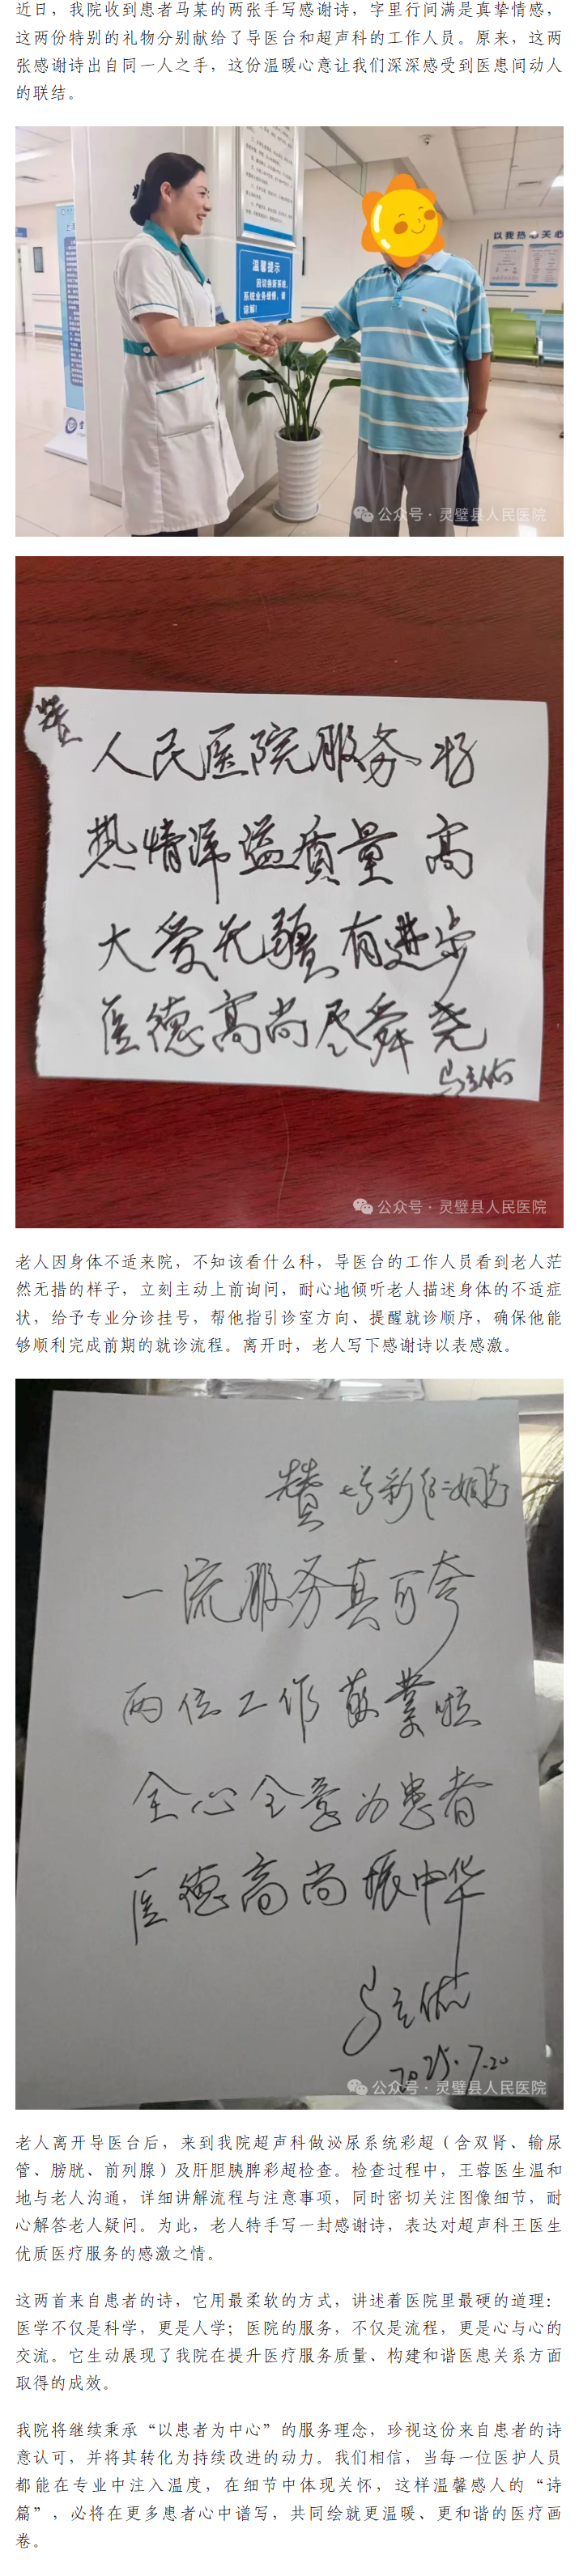 近日，我院收到患者马某的两张手写感谢诗，字里行间满是真挚情感，
这两份特别的礼物分别献给了导医台和超声科的工作人员。原来，这两
张感谢诗出自同一人之手，这份温暖心意让我们深深感受到医患间动人
的联结。
温馨提示
因切换新系统，
系统业务缓慢，敬
请谅解！
以我热心关心
公众号·灵璧县人民医院
赞
人民医院服务好
热情洋溢质量高
大爱无疆有进步
医德高尚尽舜尧
马立佑
公众号·灵璧县人民医院
老人因身体不适来院，不知该看什么科，导医台的工作人员看到老人茫
然无措的样子，立刻主动上前询问，耐心地倾听老人描述身体的不适症
状，给予专业分诊挂号，帮他指引诊室方向、提醒就诊顺序，确保他能
够顺利完成前期的就诊流程。离开时，老人写下感谢诗以表感激。
赞七号
一流服务真可夸
两位工作敬业啦
全心全意为患者
医德高尚振中华
马立佑
2025.7.20
公众号·灵璧县人民医院
老人离开导医台后，来到我院超声科做泌尿系统彩超（含双肾、输尿
管、膀胱、前列腺）及肝胆胰脾彩超检查。检查过程中，王蓉医生温和
地与老人沟通，详细讲解流程与注意事项，同时密切关注图像细节，耐
心解答老人疑问。为此，老人特手写一封感谢诗，表达对超声科王医生
优质医疗服务的感激之情。
这两首来自患者的诗，它用最柔软的方式，讲述着医院里最硬的道理：
医学不仅是科学，更是人学；医院的服务，不仅是流程，更是心与心的
交流。它生动展现了我院在提升医疗服务质量、构建和谐医患关系方面
取得的成效。
我院将继续秉承“以患者为中心”的服务理念，珍视这份来自患者的诗
意认可，并将其转化为持续改进的动力。我们相信，当每一位医护人员
都能在专业中注入温度，在细节中体现关怀，这样温馨感人的“诗
篇”，必将在更多患者心中谱写，共同绘就更温暖、更和谐的医疗画
卷。